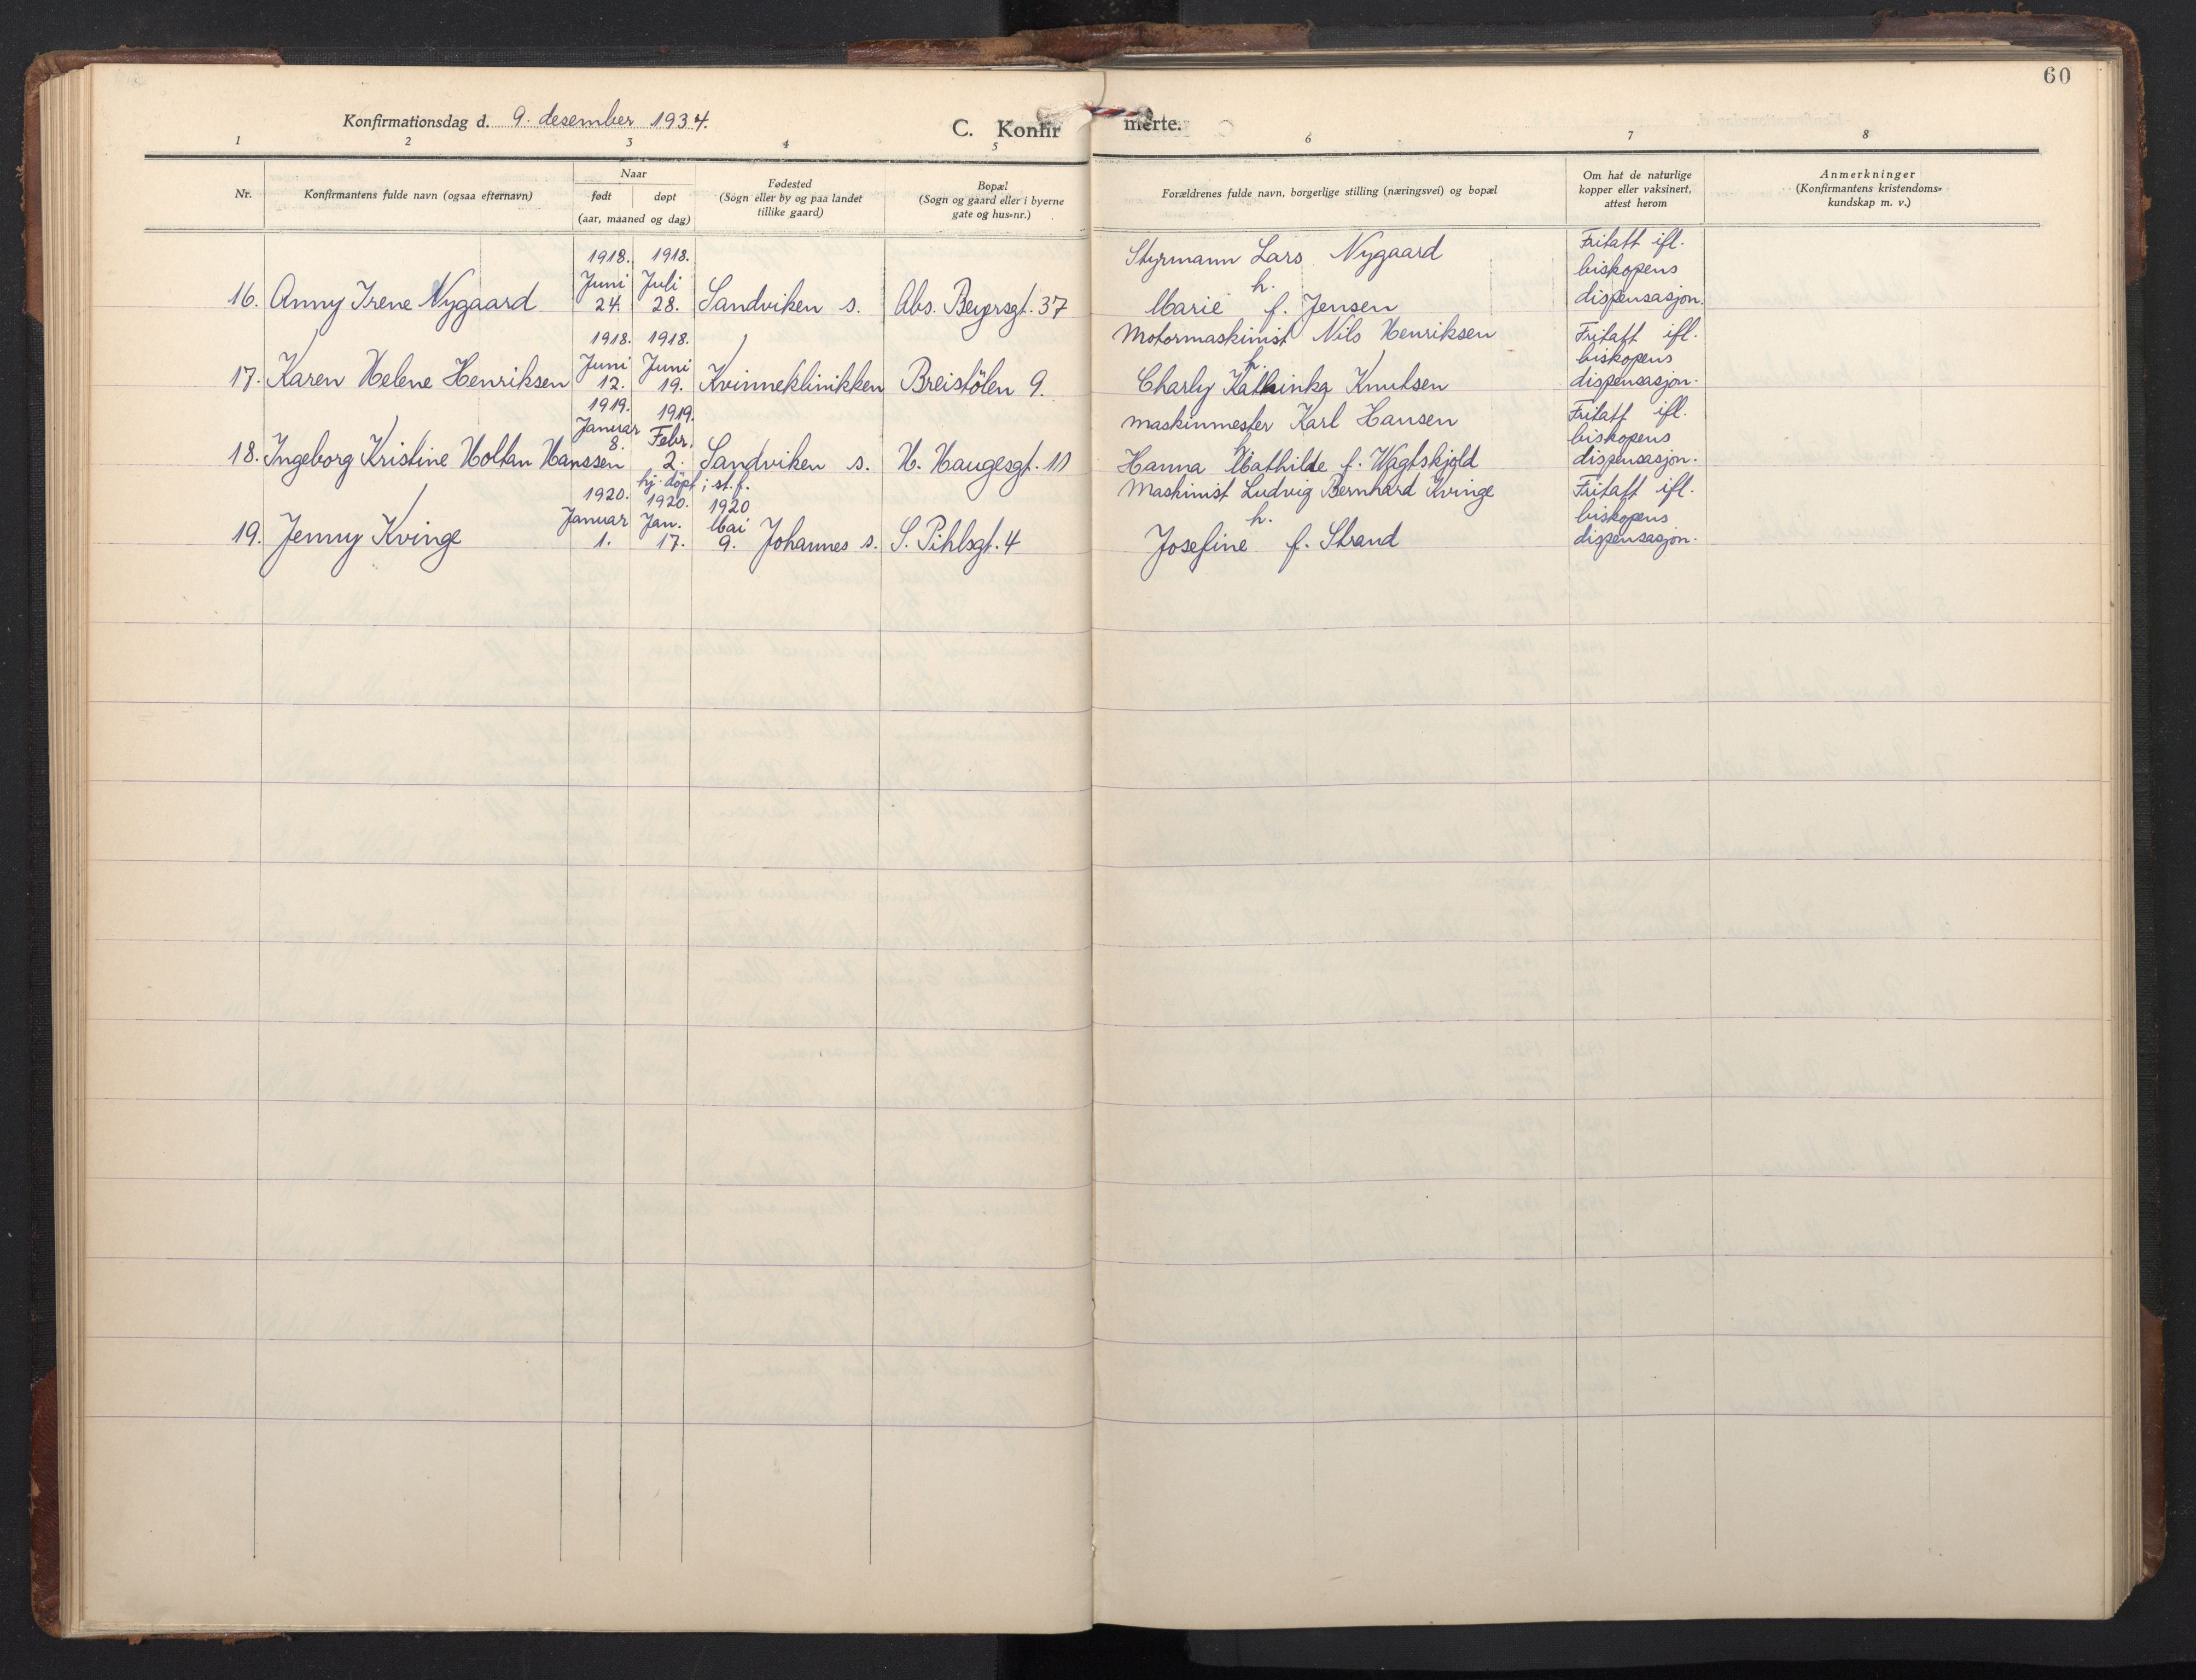 60
Konfirmationsdag d. 9. desember 1934.
C. Konfirmerte.
1 2 3 4 5 6 7 8
Nr.
Konfirmantens fulde navn (ogsaa efternavn)
Naar
født døpt
(aar, maaned og dag)
Fødested
(Sogn eller by og paa landet
tillike gaard)
Bopæl
(Sogn og gaard eller i byerne
gate og hus-nr.)
Forældrenes fulde navn, borgerlige stilling (næringsvei) og bopæl
Om hat de naturlige
kopper eller vaksinert,
attest herom
Anmerkninger
(Konfirmantens kristendoms-
kundskap m. v.)
1918. 1918. Styrmann Lars Nygaard Fritatt ifl.
Juni Juli h. biskopens
16. Anny Irene Nygaard 24. 28. Sandviken s. Abs. Beyersgt. 37 Marie f. Jensen dispensasjon.
1918. 1918. Motormaskinist Nils Henriksen Fritatt ifl.
Juni Juni h. biskopens
17. Karen Helene Henriksen 12. 19. Kvinneklinikken Breistölen 9. Charly Kathinka Knutsen dispensasjon.
1919. 1919. Maskinmester Karl Hansen Fritatt ifl.
Januar Febr. h. biskopens
18. Ingeborg Kristine Holtan Hanssen 8. 2. Sandviken s. H. Haugesgt. 11 Hanna Mathilde f. Wagtskjold dispensasjon.
hj. döpt i st.k.
1920. 1920. 1920 Maskinist Ludvig Bernhard Kvinge Fritatt ifl.
Januar Jan. Mai h. biskopens
19. Jenny Kvinge 1. 17. 9. Johannes s. S. Pihlsgt. 4 Josefine f. Strand dispensasjon.